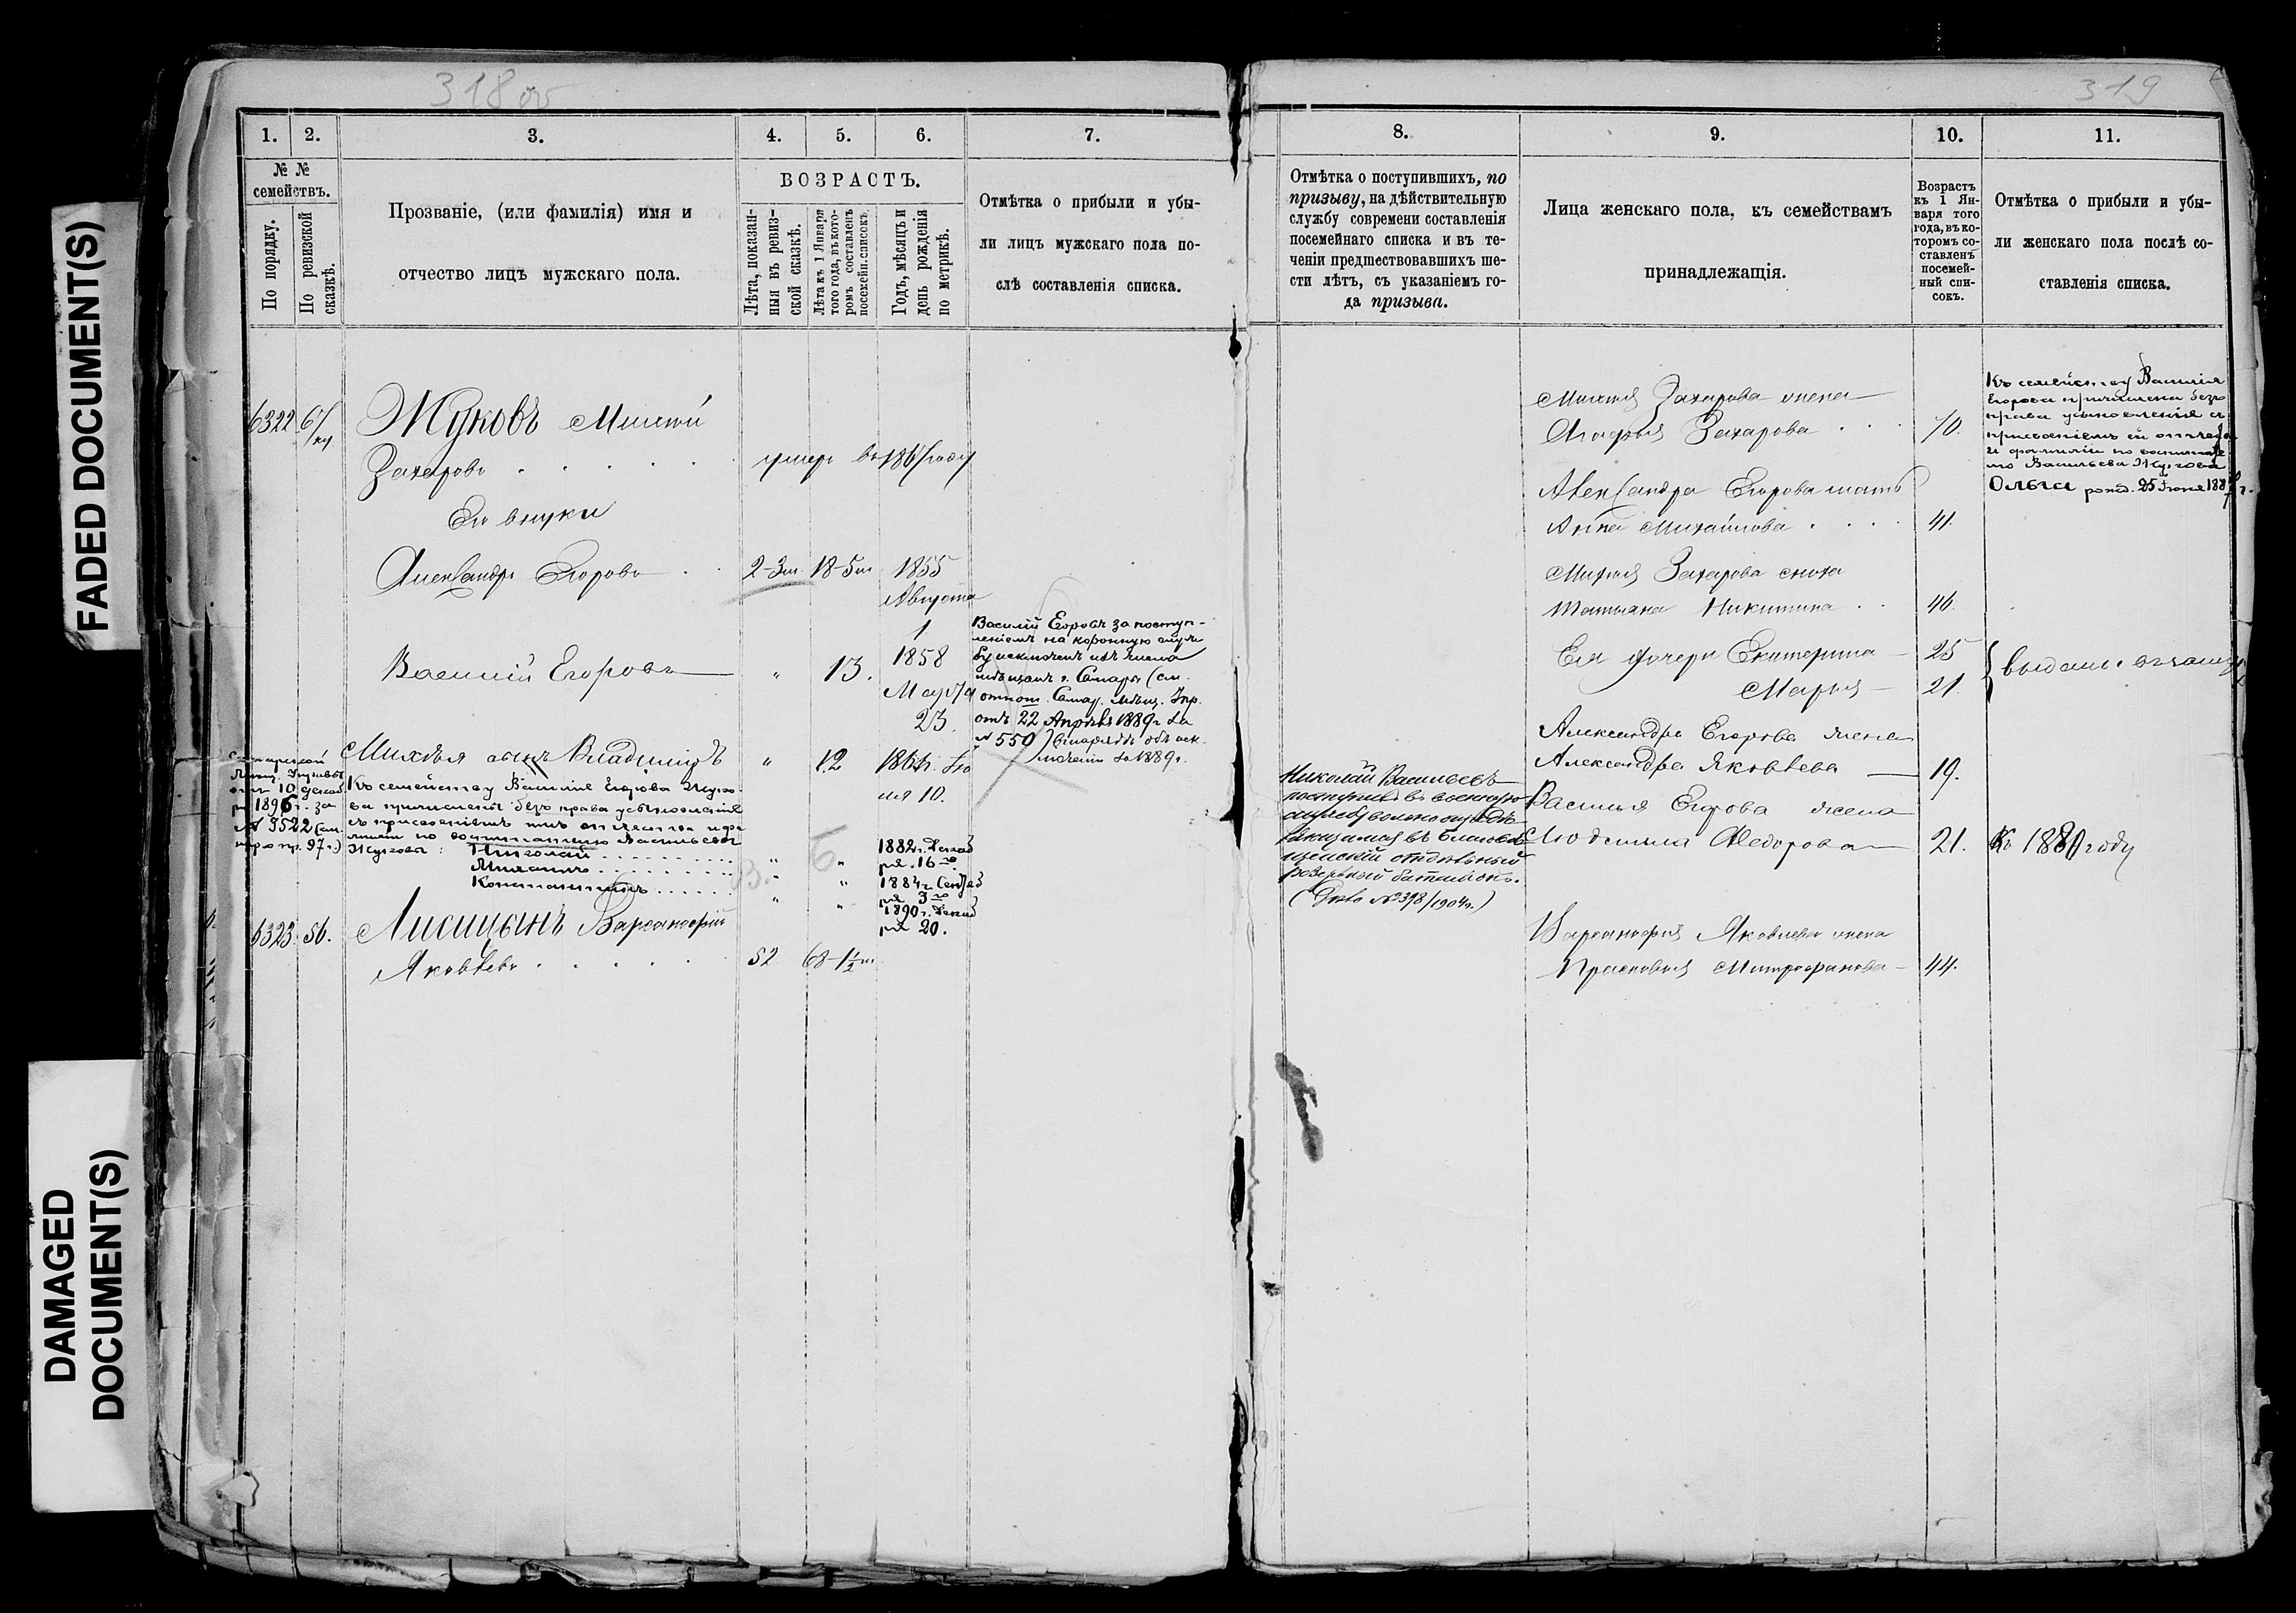 FADED DOCUMENT(S)
DAMAGED
DOCUMENT(S)
318 об
1.
2.
3.
4.
5.
6.
7.
№ №
семействъ.
По порядку.
По ревизской
сказкѣ.
Прозваніе, (или фамилія) имя и
отчество лицъ мужскаго пола.
ВОЗРАСТЪ.
Лѣта, показан-
ныя въ ревиз-
ской сказкѣ.
Лѣта къ 1 Января
того года, въ кото-
ромъ составленъ
посемейн. списокъ.
Годъ, мѣсяцъ и
день рожденія
по метрикѣ.
Отмѣтка о прибыли и убы-
ли лицъ мужскаго пола по-
слѣ составленія списка.
6322
Жуковъ Михей
Захаровъ
умеръ въ 186 году
Его внуки
Александръ Егоровъ
2-3м
18-5м
1855
Августа
1
Василій Егоровъ
"
13.
1858
Марта
23.
Василій Егоровъ за поступ-
леніемъ на коронную служ-
бу исключенъ изъ числа
мѣщанъ г. Самары (см.
отнош. Самар. Мѣщ. Упр.
отъ 22 Апрѣля 1889 г. за
№ 550)
ключеніи за 1889 г.
Михѣя сынъ Владиміръ
"
12
Ію
ня 10.
Самарской
Мѣщ. Управы
отъ 10 декаб
ря 1896 г. за
№ 9522
Къ семейству Василія Егорова Жуко-
ва причислены безъ права усыновленія
съ присвоеніемъ имъ отчества и фа-
миліи по воспитанію Васильевы
Жуковы: Николай
Михаилъ
Константинъ
1882 г. Декаб
ря 16 го
1884 г. Сентяб
ря 3 го
1890 г. Декаб
ря 20.
6323
56.
Лисицынъ Варсанофій
Яковлевъ
52
68-1½м
319
8.
9.
10.
11.
Отмѣтка о поступившихъ, по
призыву, на дѣйствительную
службу современи составленія
посемейнаго списка и въ те-
ченіи предшествовавшихъ ше-
сти лѣтъ, съ указаніемъ го-
да призыва.
Лица женскаго пола, къ семействамъ
принадлежащія.
Возрастъ
къ 1 Ян-
варя того
года, въ ко-
торомъ со-
ставленъ
посемей-
ный спи-
сокъ.
Отмѣтка о прибыли и убы-
ли женскаго пола послѣ со-
ставленія списка.
Михея Захарова жена
Агафья Захарова
70.
Къ семейству Василія
Егорова причислена безъ
права усыновленія съ
присвоеніемъ ей отчества
и фамиліи по воспитанію
Васильева Жукова
Ольга рожд. 25 Іюня 1887 г.
Александра Егорова мать
Анна Михайлова
41.
Михея Захарова сноха
Татьяна Никитина
46.
Ея дочери Екатерина
25
Марья
21.
выданы въ замуж
Александра Егорова жена
Александра Яковлева
19.
Василья Егорова жена
Людмила Федорова
21.
Къ 1880 году
Николай Васильевъ
поступилъ въ военную
службу вольноопредѣ-
ляющимся въ
отдѣльный
резервный баталіонъ.
(Дѣло № 398/1904 г.)
Варсанофія Яковлева жена
Прасковья Митрофанова
44.